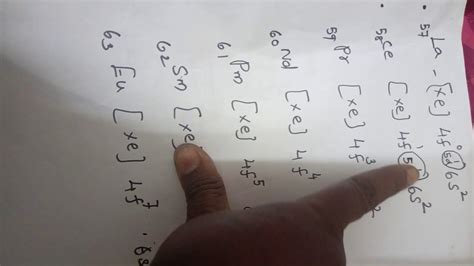 57 La - [xe] 4f⁰ 5d¹ 6s²
58 Ce [xe] 4f¹ 5 6s²
59 Pr [xe] 4f³ 2
60 Nd [xe] 4f⁴
61 Pm [xe] 4f⁵
62 Sm [xe]
63 Eu [xe] 4f⁷ . 6s